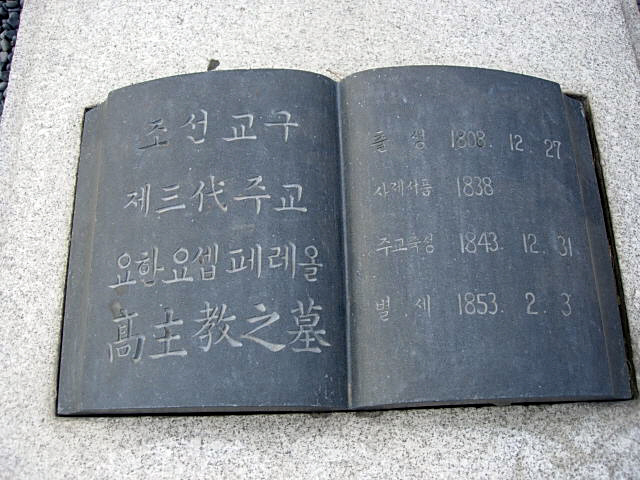 조선교구
제三代주교
요한요셉페레올
高主教之墓
출 생 1808. 12. 27
사제서품 1838
주교축성 1843. 12. 31
별 세 1853. 2. 3